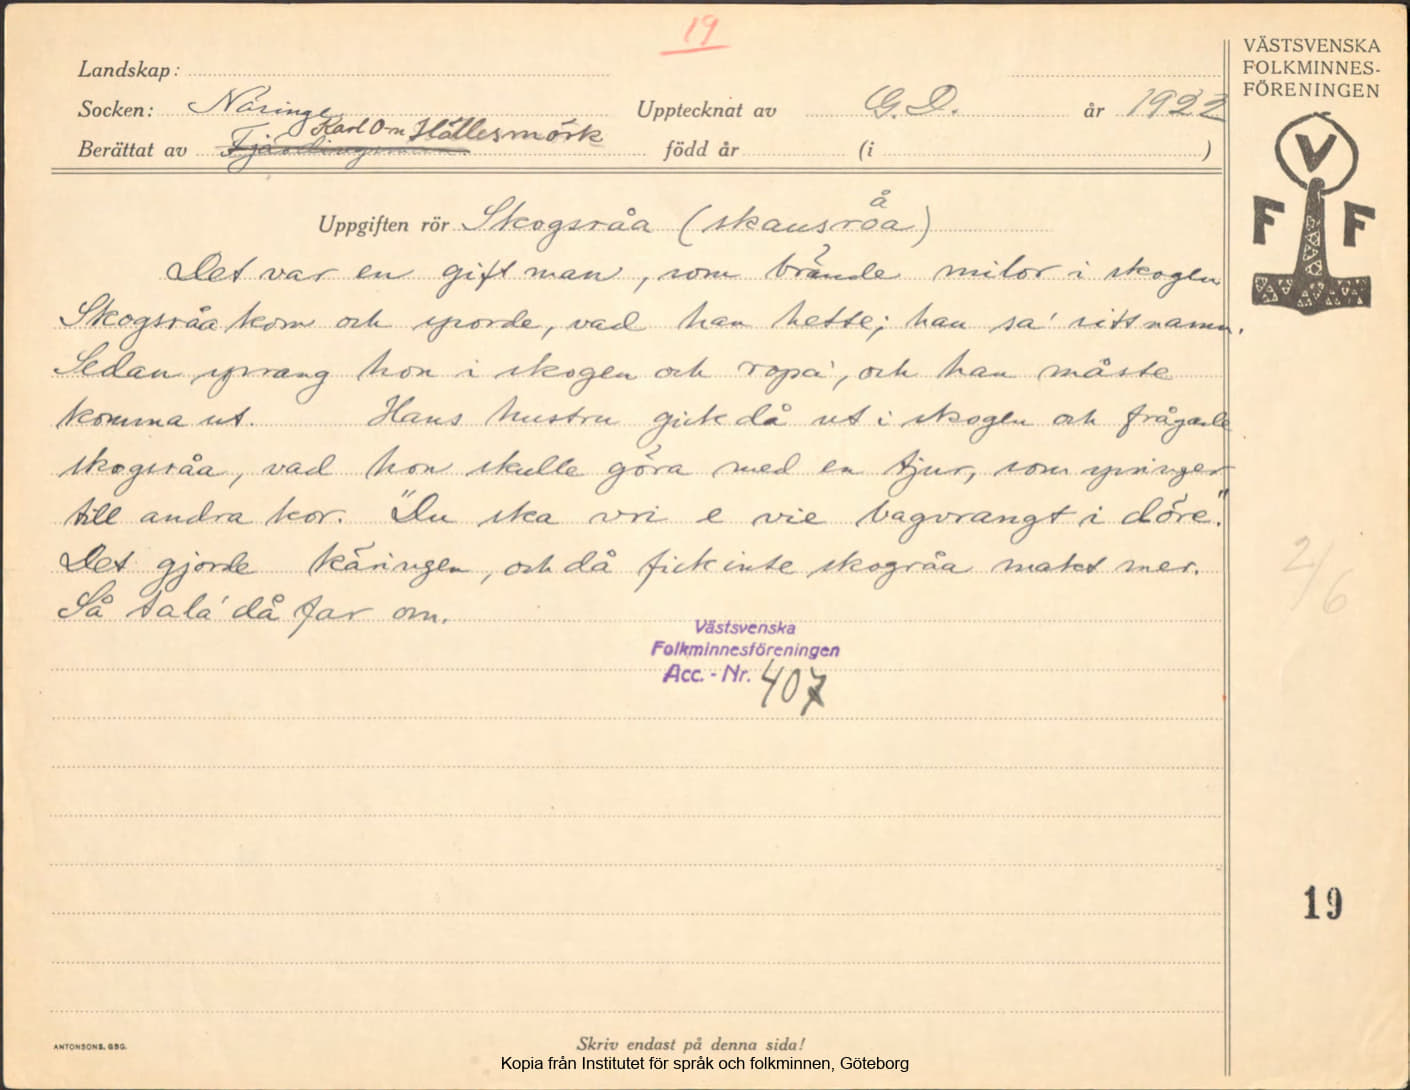 19
VÄSTSVENSKA
FOLKMINNES-
FÖRENINGEN
Landskap:
Socken: Näringe Upptecknat av G. D. år 1922
Karl Om Hällesmörk
Berättat av född år (i )
Uppgiften rör Skogsråa (skausroa)
å
Det var en gift man, som brände milor i skogen
Skogsråa kom och sporde, vad han hette; han sa' sitt namn.
Sedan sprang hon i skogen och ropa', och han måste
komma ut. Hans hustru gick då ut i skogen och frågade
skogsråa, vad hon skulle göra med en tjur, som springer
till andra kor. "Du ska vri e vie bagvrangt i döre."
Det gjorde käringen, och då fick inte skogråa makt mer.
Så tala' då far om.
Västsvenska
Folkminnesföreningen
Acc. - Nr. 407
V
F F
2/6
19
ANTONSONS, GBG.
Skriv endast på denna sida!
Kopia från Institutet för språk och folkminnen, Göteborg